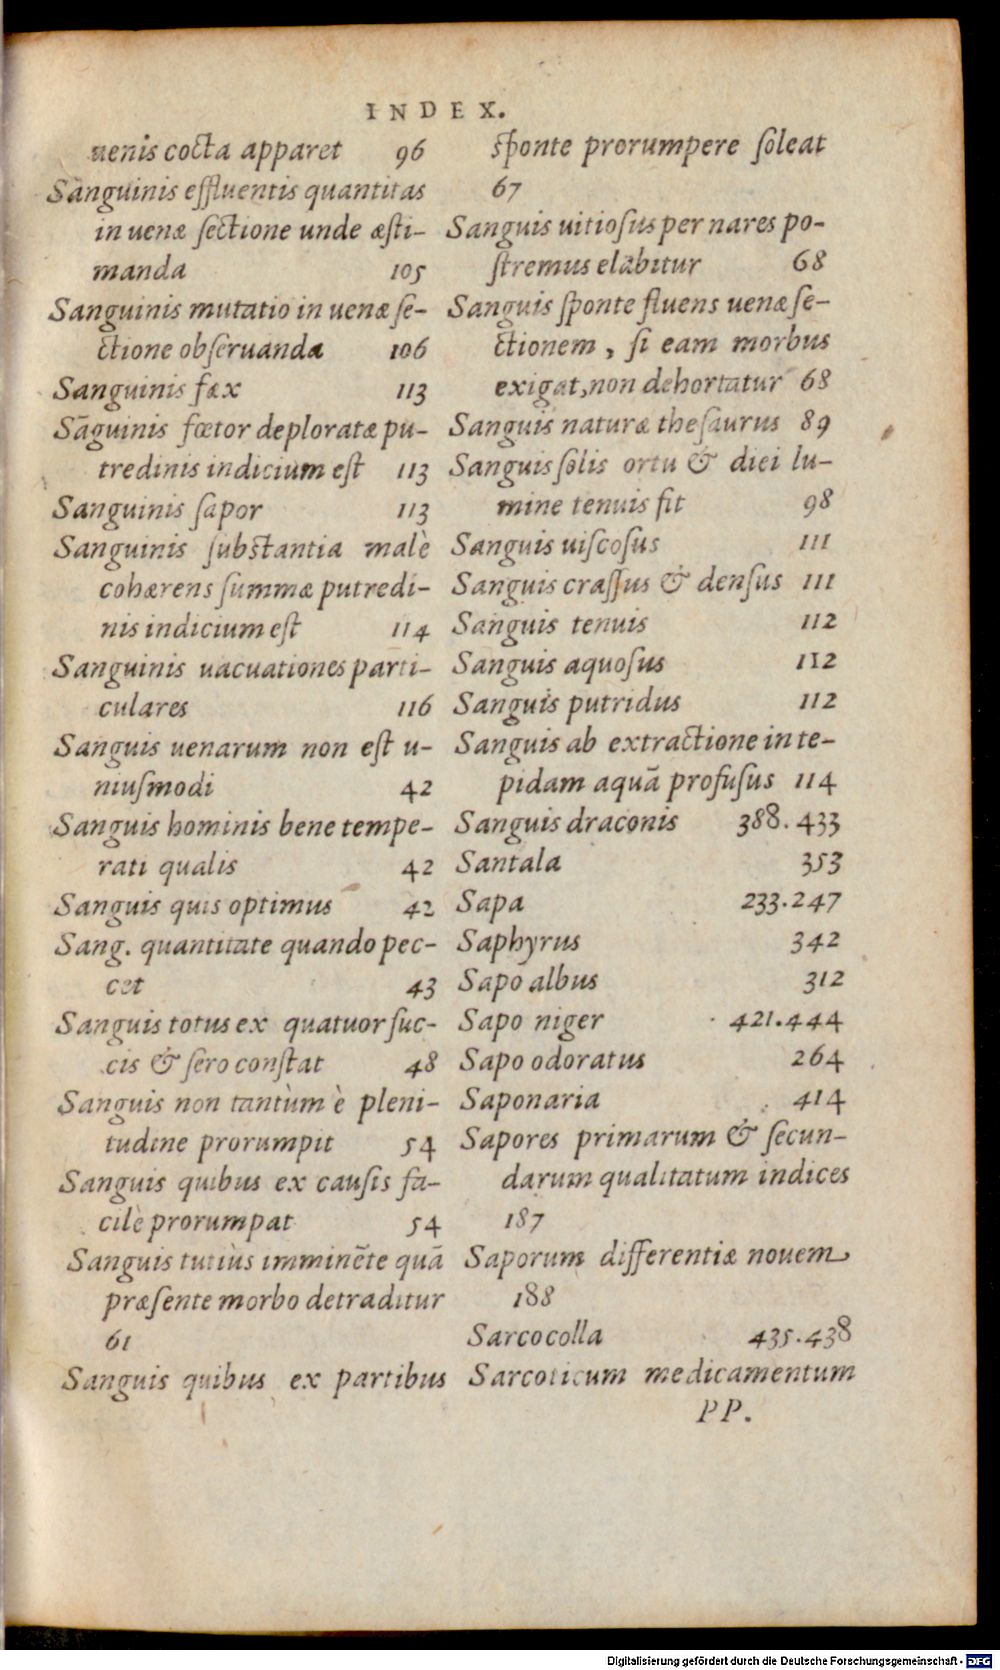 INDEX.
uenis cocta apparet 96
Sanguinis effluentis quantitas
in uenæ ſectione unde æſti-
manda 105
Sanguinis mutatio in uenæ ſe-
ctione obſeruanda 106
Sanguinis fæx 113
Sāguinis fœtor deploratæ pu-
tredinis indicium eſt 113
Sanguinis ſapor 113
Sanguinis ſubſtantia malè
cohærens ſummæ putredi-
nis indicium eſt 114
Sanguinis uacuationes parti-
culares 116
Sanguis uenarum non eſt u-
niuſmodi 42
Sanguis hominis bene tempe-
rati qualis 42
Sanguis quis optimus 42
Sang. quantitate quando pec-
cet 43
Sanguis totus ex quatuor ſuc-
cis & ſero conſtat 48
Sanguis non tantùm è pleni-
tudine prorumpit 54
Sanguis quibus ex cauſis fa-
cilè prorumpat 54
Sanguis tutiùs imminēte quā
præſente morbo detraditur
61
Sanguis quibus ex partibus
ſponte prorumpere ſoleat
67
Sanguis uitioſus per nares po-
ſtremus elabitur 68
Sanguis ſponte fluens uenæ ſe-
ctionem, ſi eam morbus
exigat, non dehortatur 68
Sanguis naturæ theſaurus 89
Sanguis ſolis ortu & diei lu-
mine tenuis fit 98
Sanguis uiſcoſus 111
Sanguis craſſus & denſus 111
Sanguis tenuis 112
Sanguis aquoſus 112
Sanguis putridus 112
Sanguis ab extractione in te-
pidam aquā profuſus 114
Sanguis draconis 388.433
Santala 353
Sapa 233.247
Saphyrus 342
Sapo albus 312
Sapo niger 421.444
Sapo odoratus 264
Saponaria 414
Sapores primarum & ſecun-
darum qualitatum indices
187
Saporum differentiæ nouem
188
Sarcocolla 435.438
Sarcoticum medicamentum
PP.
Digitalisierung gefördert durch die Deutsche Forschungsgemeinschaft - DFG